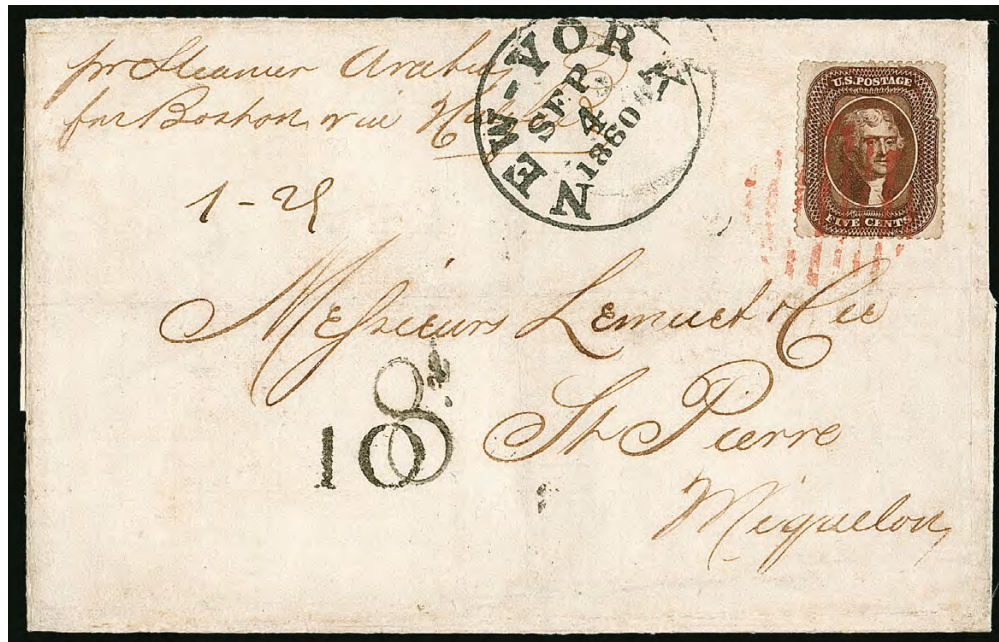 pr Steamer Arabia
for Boston, via
NEW-YORK
SEP.
4
1860
U.S. POSTAGE
FIVE CENTS
1-29
Messieurs Lemuet & Cie
St Pierre
Miquelon,
10
8